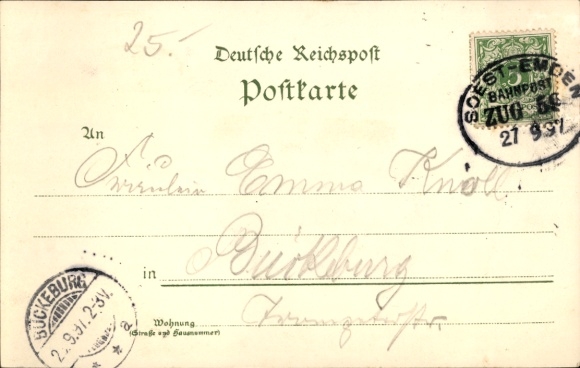 25.-
Deutsche Reichspost
Postkarte
5
SOEST-EMDEN
BAHNPOST
ZUG 56
27 9 97
An
Fräulein Emma Knoll
in Bückeburg
Wohnung
(Straße und Hausnummer)
BÜCKEBURG
9.97. 2-3V.
* * a